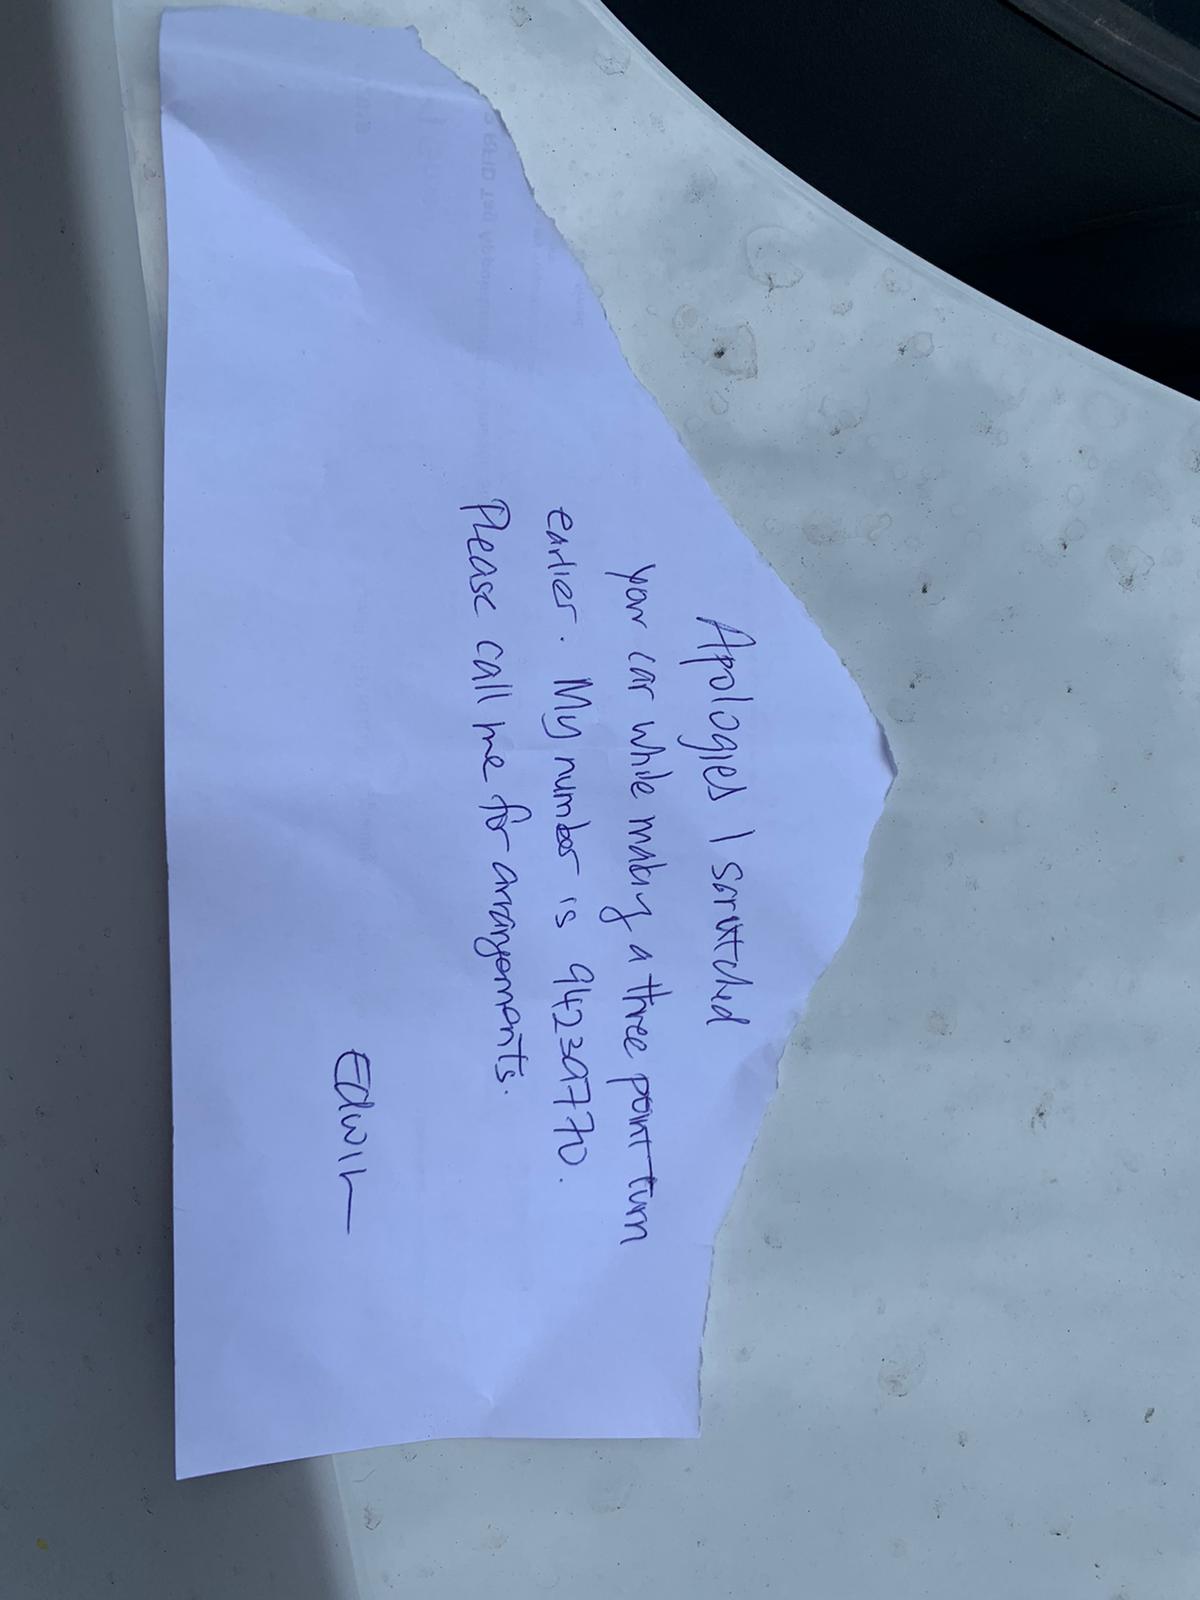 Apologies I scratched
your car while making a three point turn
earlier. My number is 94239770.
Please call me for arrangements.
Edwin